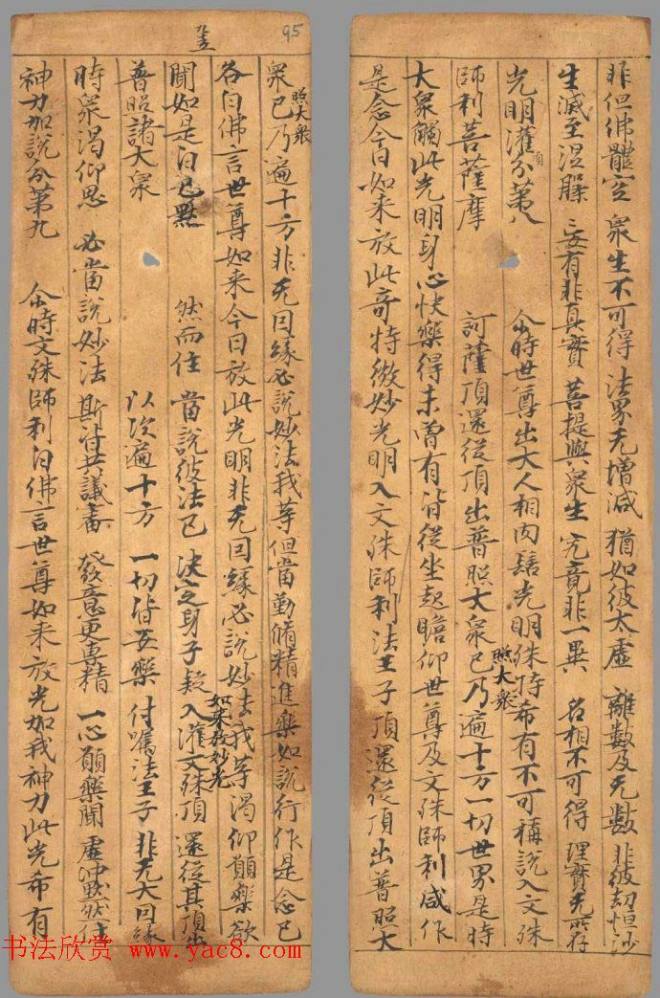 非但佛體空 衆生不可得 法界无增減 猶如彼太虛 離數及无數 非彼劫恒沙
生滅至涅槃 有非真實 菩提與衆生 究竟非一異 名相不可得 理實无所存
光明灌頂分第八 尒時世尊出大人相肉髻光明殊特希有不可稱說入文殊
師利菩薩摩訶薩頂還從頂出普照大衆已乃遍十方一切世界是時
照大衆
大衆觸此光明身心快樂得未曾有皆從坐起瞻仰世尊及文殊師利咸作
是念今日如来放此奇特微妙光明入文殊師利法王子頂還從頂出普照大
95
衆已乃遍十方非无因緣必說妙法我等但當勤脩精進樂如說行作是念已
照大衆
各白佛言世尊如来今日放此光明非无因緣必說妙法我等渴仰願樂欲
聞如是白已默然而住 當說彼法已 决定身子疑 如来放妙光 入灌文殊頂 還從其頂出
普照諸大衆 以次遍十方 一切皆安樂 付囑法王子 非无大因緣
時衆渴仰思 必當說妙法 發意更專精 一心願樂聞 虛冲默然住
神力加說分第九 尒時文殊師利白佛言世尊如来放光加我神力此光希有
书法欣赏 www.yac8.com